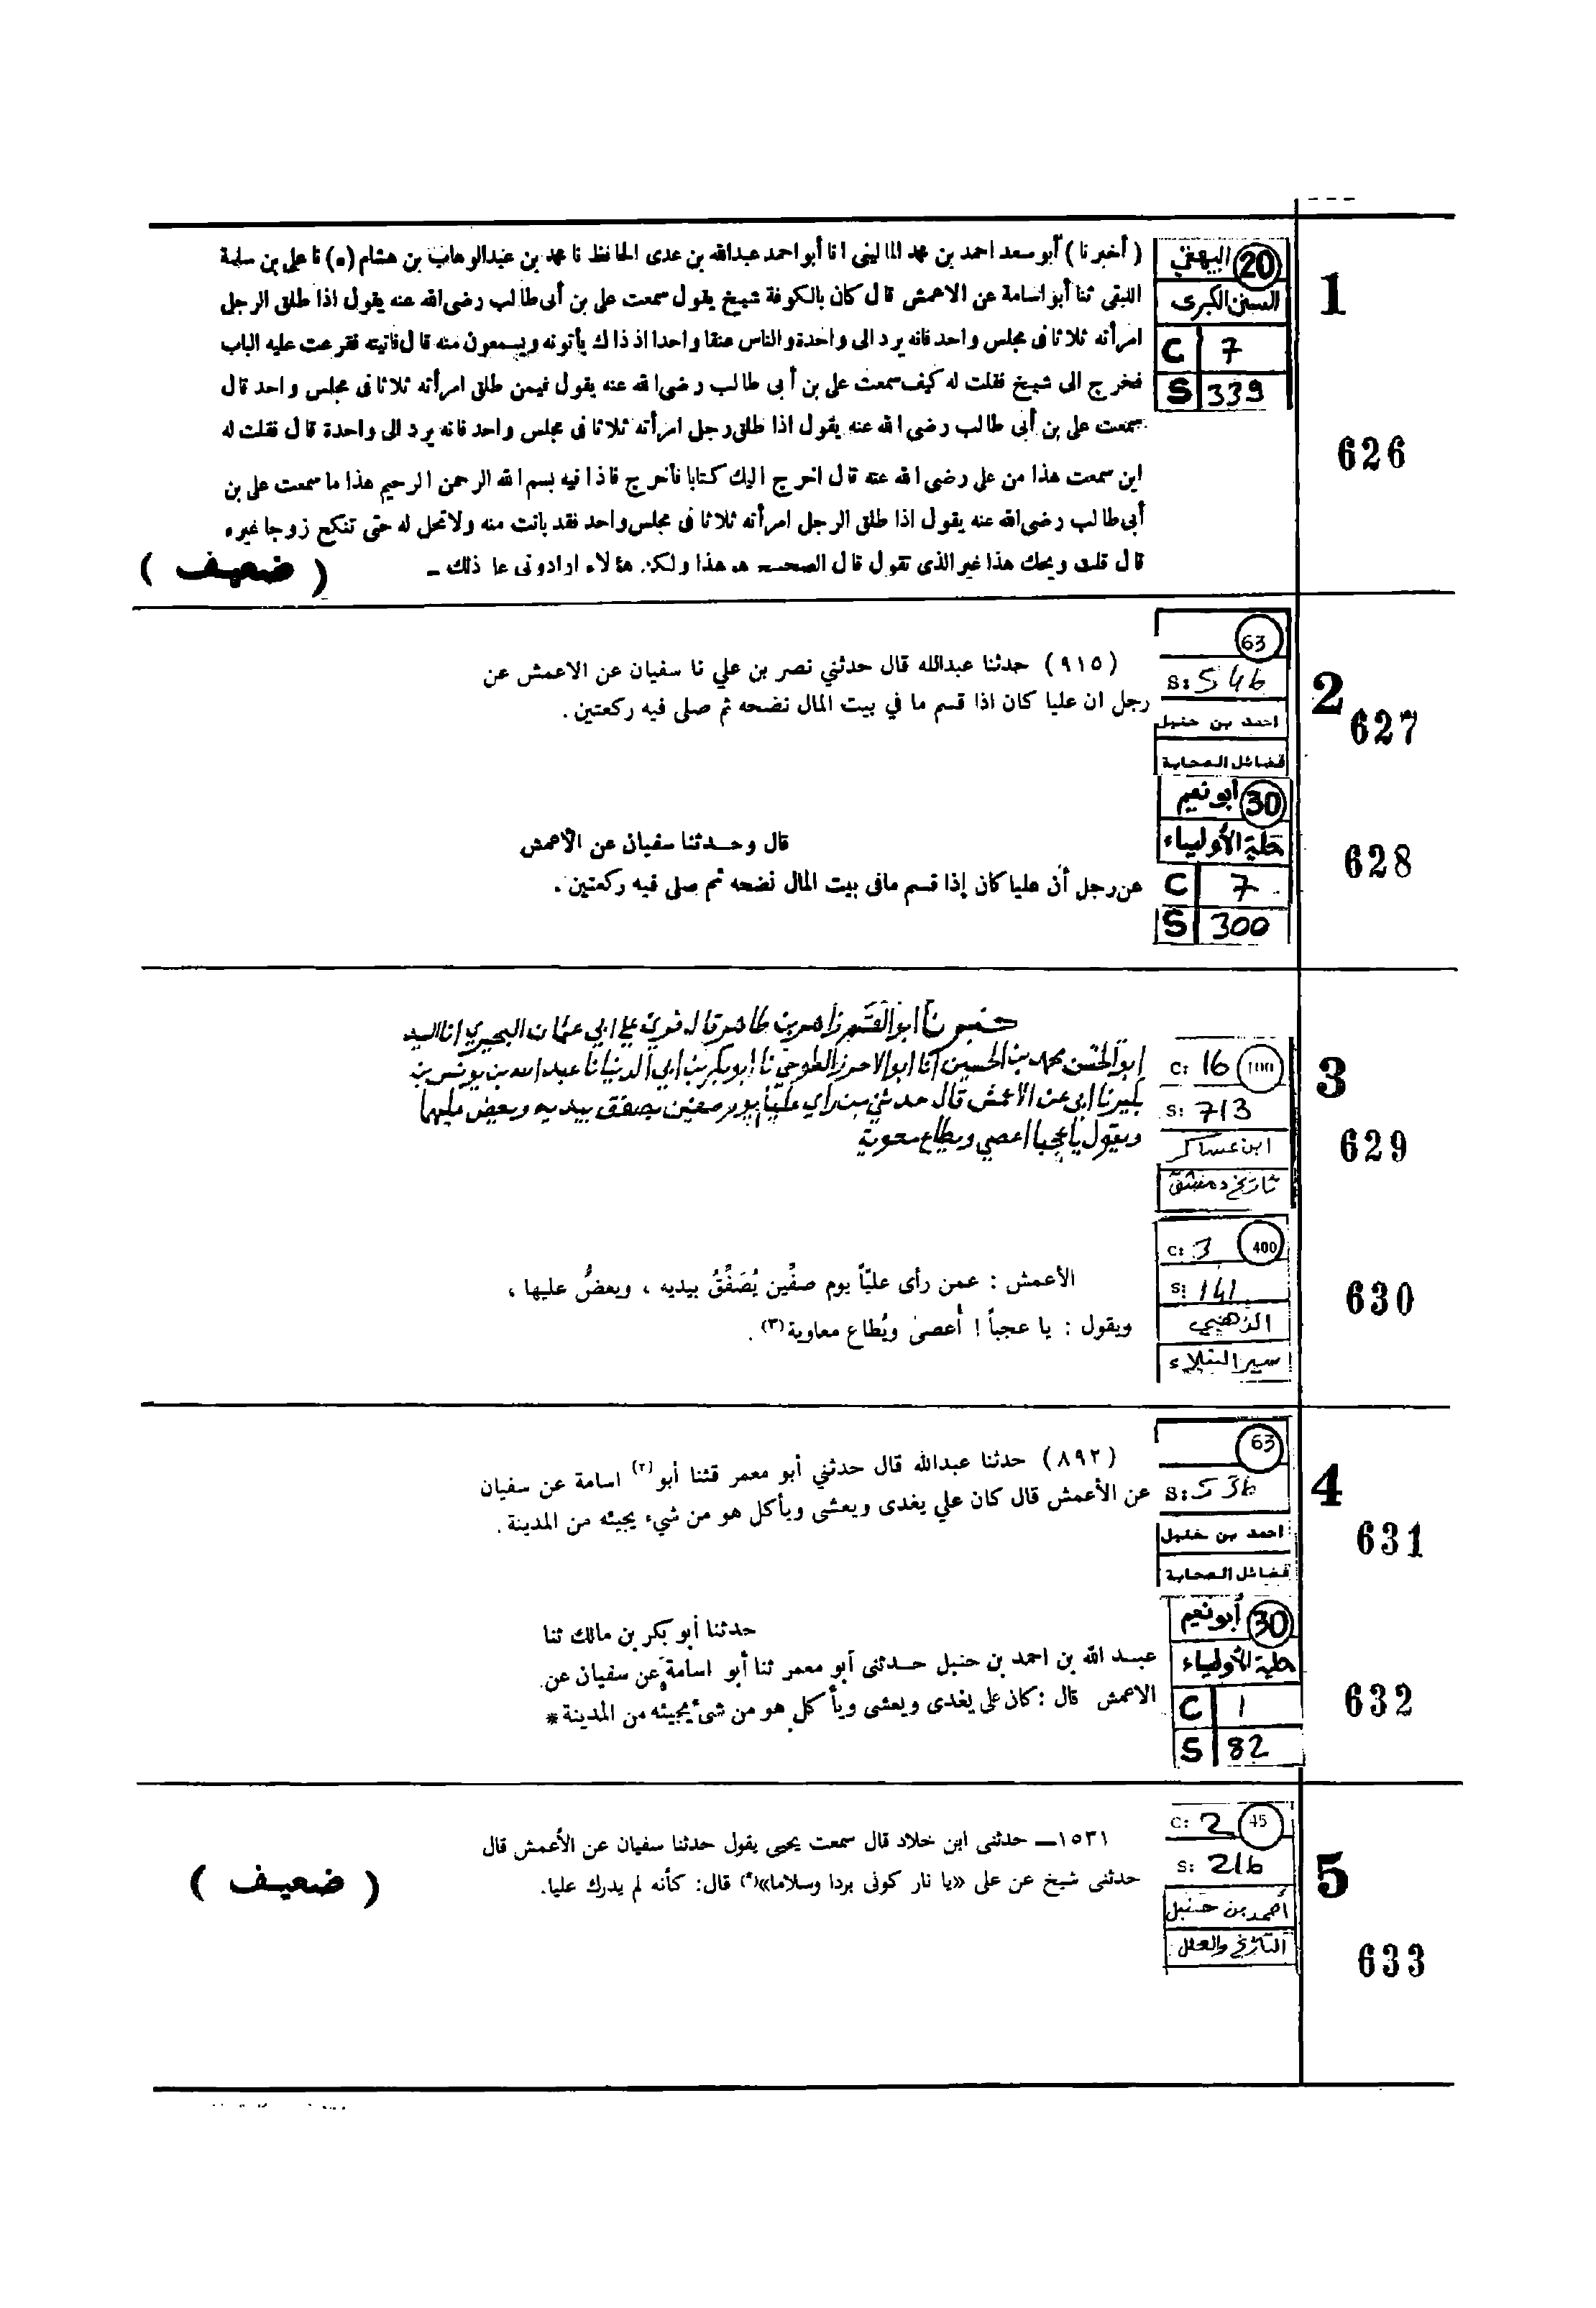 1
626
20 البيهقي
السنن الكبرى
C 7
S 339
( أخبرنا ) أبو سعد احمد بن محمد الماليني انا أبو احمد عبدالله بن عدى الحافظ نا محمد بن عبدالوهاب بن هشام (ه) نا على بن سلمة
اللبقى ثنا أبو اسامة عن الاعمش قال كان بالكوفة شيخ يقول سمعت على بن أبى طالب رضى الله عنه يقول اذا طلق الرجل
امرأته ثلاثا فى مجلس واحد فانه يرد الى واحدة والناس عنقا واحدا اذ ذاك يأتونه ويسمعون منه قال فاتيته فقرعت عليه الباب
فخرج الى شيخ فقلت له كيف سمعت على بن أبى طالب رضى الله عنه يقول فيمن طلق امرأته ثلاثا فى مجلس واحد قال
سمعت على بن أبى طالب رضى الله عنه يقول اذا طلق رجل امرأته ثلاثا فى مجلس واحد فانه يرد الى واحدة قال فقلت له
اين سمعت هذا من على رضى الله عنه قال اخرج اليك كتابا فأخرج فاذا فيه بسم الله الرحمن الرحيم هذا ما سمعت على بن
أبى طالب رضى الله عنه يقول اذا طلق الرجل امرأته ثلاثا فى مجلس واحد فقد بانت منه ولا تحل له حتى تنكح زوجا غيره
قال قلت ويحك هذا غير الذى تقول قال الصحيح هو هذا ولكن هؤلاء ارادونى على ذلك ــ
( ضعيف )
2
627
63
S: 546
احمد بن حنبل
فضائل الصحابة
(٩١٥) حدثنا عبدالله قال حدثني نصر بن علي نا سفيان عن الاعمش عن
رجل ان عليا كان اذا قسم ما في بيت المال نضحه ثم صلى فيه ركعتين .
628
30 أبو نعيم
حلية الأولياء
C 7
S 300
قال وحدثنا سفيان عن الأعمش
عن رجل أن عليا كان إذا قسم مافى بيت المال نضحه ثم صلى فيه ركعتين .
3
629
C: 16 100
S: 713
ابن عساكر
تاريخ دمشق
نا ابو القسم زاهر بن طاهر قال قرئ على ابي عثمان البحيري انا السيد
ابو الحسن محمد بن الحسين انا ابو الاحرز الطوحي نا ابو بكر بن ابي الدنيا نا عبد الله بن يونس بن
بكير نا ابي عن الاعمش قال حدثني من راي عليا يوم صفين يصفق بيديه ويعض عليها
ويقول يا عجبا اعصى ويطاع معوية
630
C: 3 400
S: 141
الذهبي
سير النبلاء
الأعمش : عمن رأى عليّاً يوم صفِّين يُصَفِّقُ بيديه ، ويعضُّ عليها ،
ويقول : يا عجباً ! أُعصى ويُطاع معاوية(٣) .
4
631
63
S: 536
احمد بن حنبل
فضائل الصحابة
(٨٩٢) حدثنا عبدالله قال حدثني أبو معمر قثنا أبو(٢) اسامة عن سفيان
عن الأعمش قال كان علي يغدى ويعشى ويأكل هو من شيء يجيئه من المدينة .
632
30 أبو نعيم
حلية الأولياء
C 1
S 82
حدثنا أبو بكر بن مالك ثنا
عبد الله بن احمد بن حنبل حدثنى أبو معمر ثنا أبو اسامة عن سفيان عن
الاعمش قال : كان على يغدى ويعشى ويأكل هو من شئ يجيئه من المدينة *
5
633
C: 2 45
S: 216
أحمد بن حنبل
التاريخ والعلل
١٥٣١ــ حدثنى ابن خلاد قال سمعت يحيى يقول حدثنا سفيان عن الأعمش قال
حدثنى شيخ عن على «يا نار كونى بردا وسلاما»(٥) قال: كأنه لم يدرك عليا.
( ضعيف )